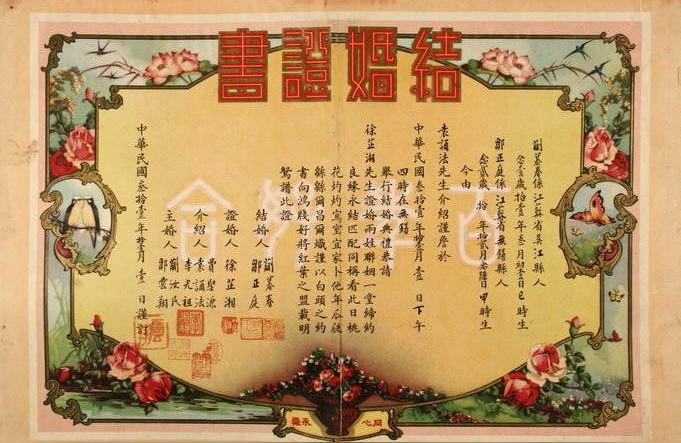 結婚證書
蘭慕春係江蘇省吳江縣人
念壹歲拾壹年叁月初壹日巳時生
鄒正庭係江蘇省無錫縣人
念貳歲拾年拾貳月念陸日甲時生
今由
袁誦法先生介紹謹詹於
中華民國叁拾壹年拾貳月壹日下午
四時在無錫
舉行結婚典禮恭請
徐芷湘先生證婚兩姓聯姻一堂締約
良緣永結匹配同稱看此日桃
花灼灼宜室宜家卜他年瓜瓞
緜緜爾昌爾熾謹以白頭之約
書向鴻牋好將紅葉之盟載明
鴛譜此證
結婚人
鄒正庭
證婚人 徐芷湘
介紹人
袁誦法
李元祖
主婚人
鄒雲翔
中華民國叁拾壹年拾貳月壹日謹訂
同心
永樂